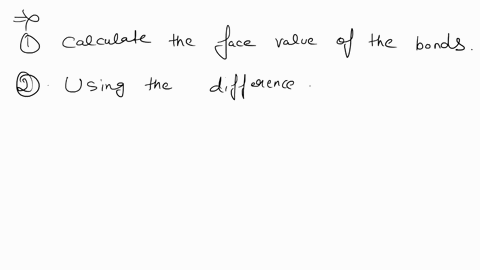 ⇒
① Calculate the face value of the bonds.
② Using the difference.